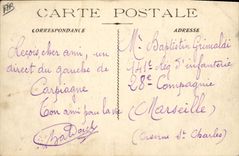 CARTE POSTALE
CORRESPONDANCE
ADRESSE
Reçois cher ami, un
direct du gauche de
Carpiagne
Ton ami pour la vie
Mr Baptistin Grimaldi
141e Rég d'infanterie
28e Compagnie
(Marseille)
(Caserne St Charles)